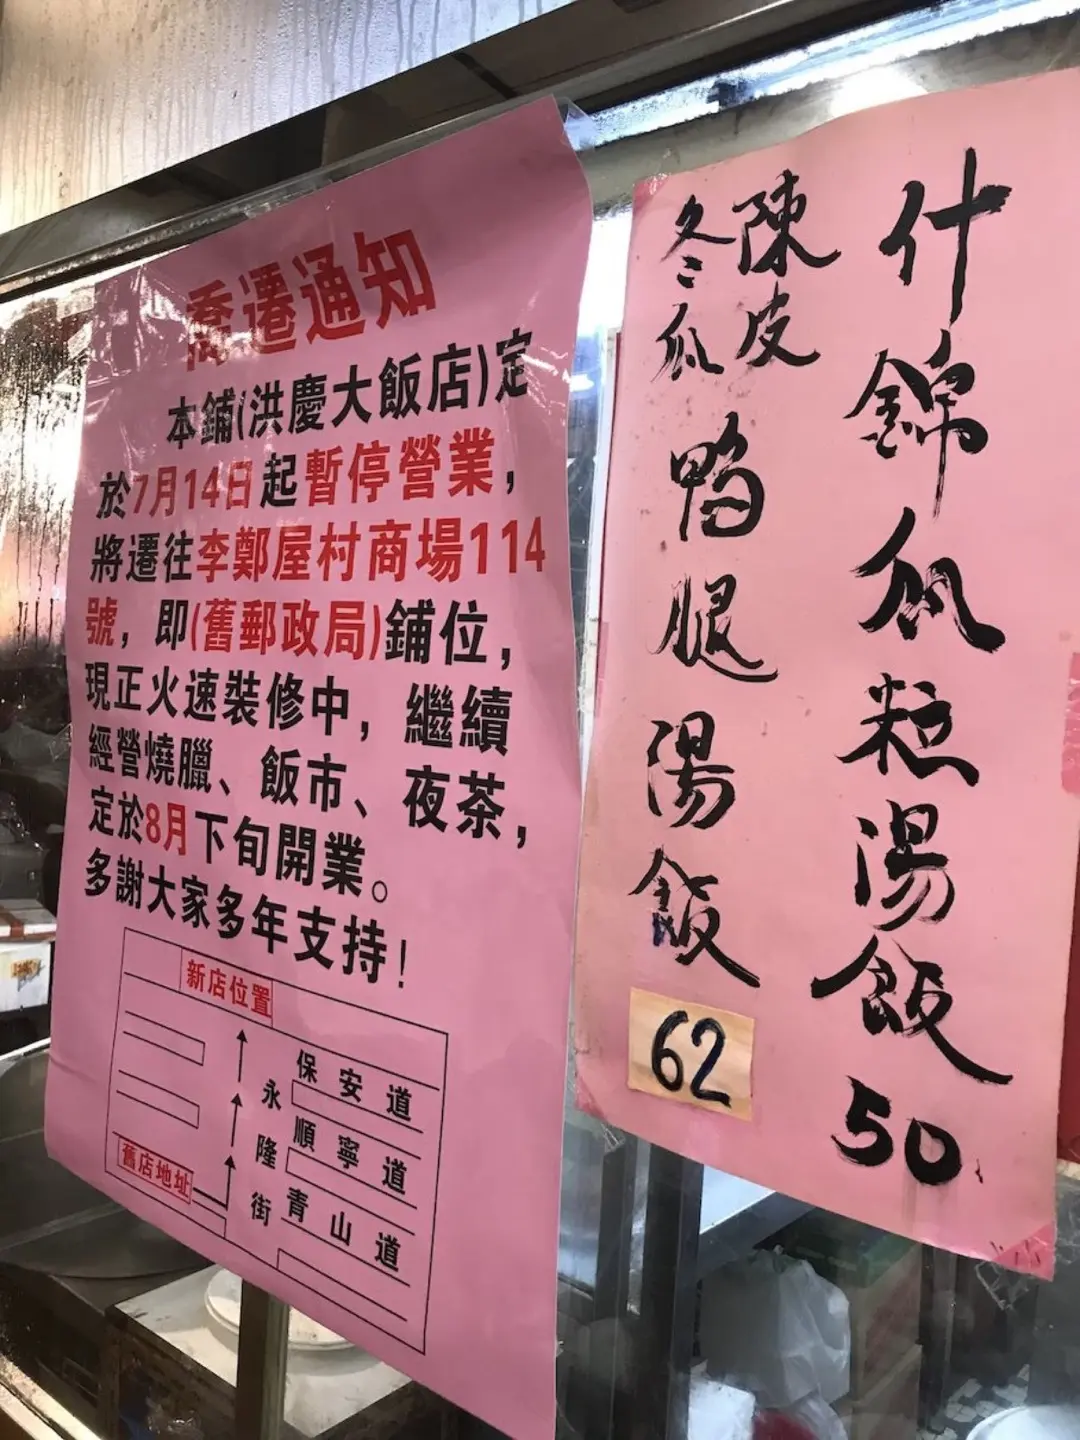 喬遷通知
本鋪(洪慶大飯店)定
於7月14日起暫停營業，
將遷往李鄭屋村商場114
號，即(舊郵政局)鋪位，
現正火速裝修中，繼續
經營燒臘、飯市、夜茶，
定於8月下旬開業。
多謝大家多年支持！
新店位置
保安道
順寧道
青山道
永隆街
舊店地址
什錦瓜粒湯飯 50
陳皮
冬瓜
鴨腿湯飯
62